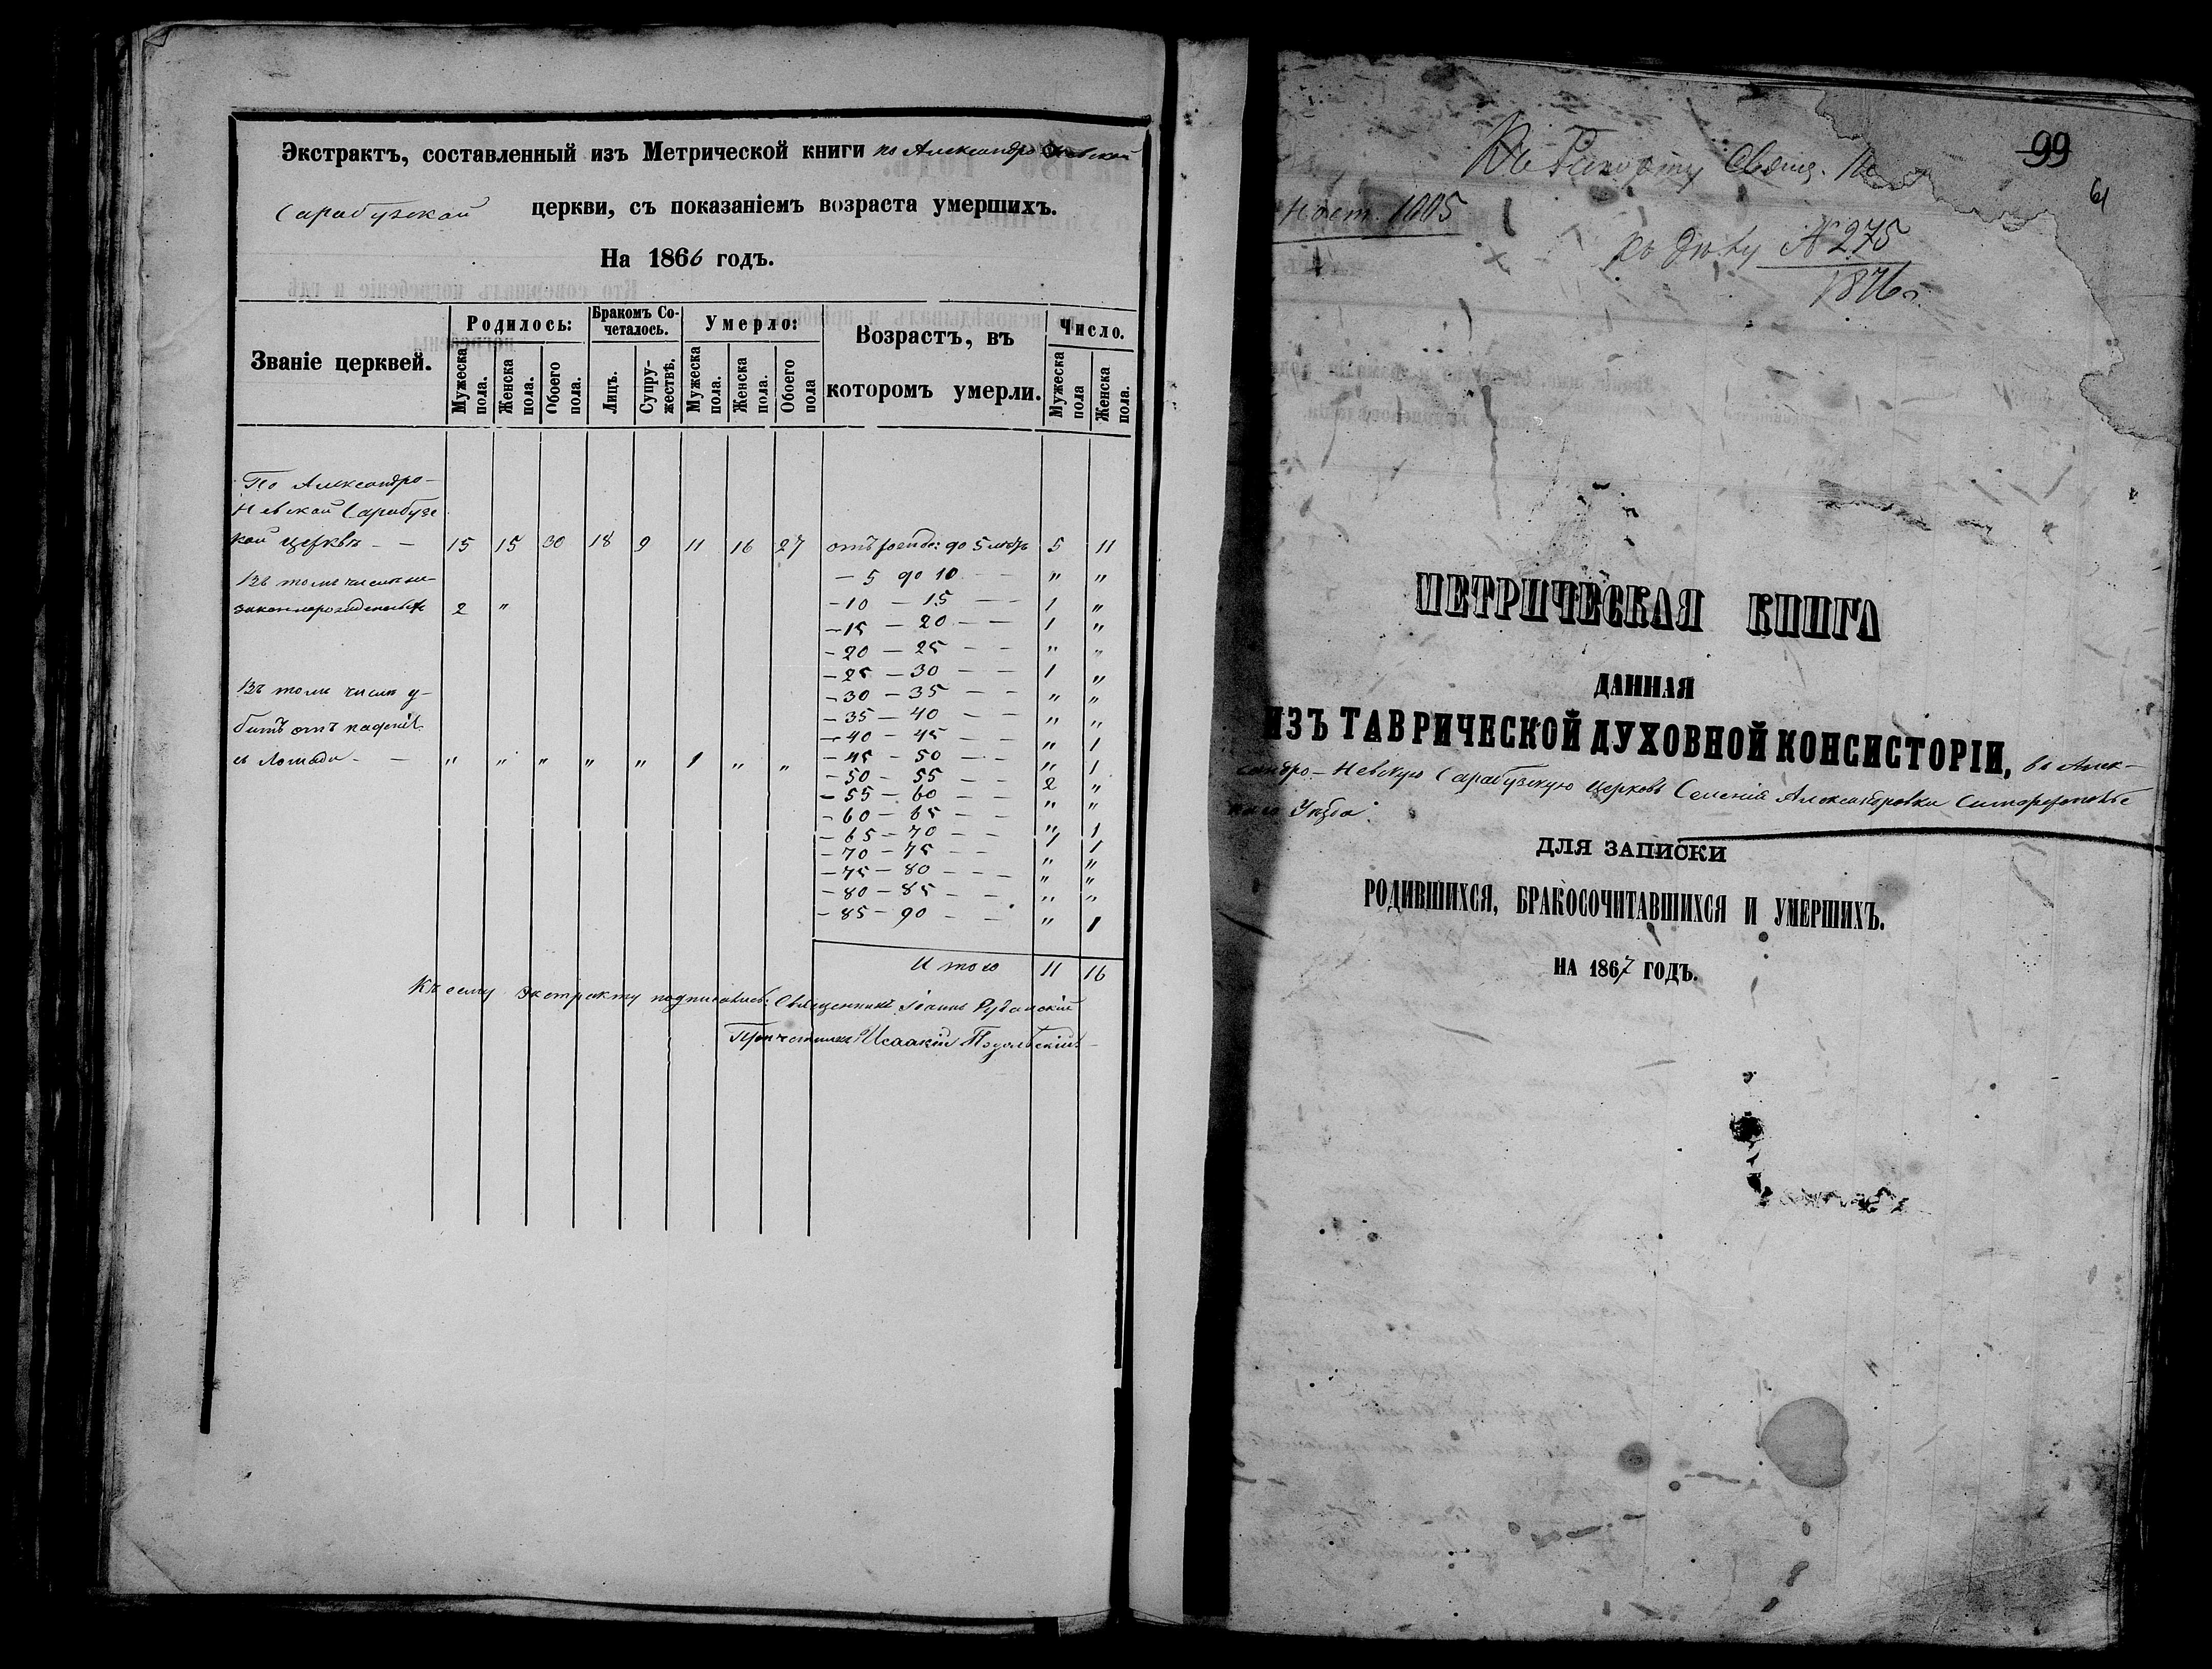 Экстрактъ, составленный изъ Метрической книги по Александро Невской
Сарабузской церкви, съ показаніемъ возраста умершихъ.
На 1866 годъ.
Званіе церквей. Родилось: Бракомъ Со-четалось. Умерло: Возрастъ, въ которомъ умерли. Число.
Мужеска пола. Женска пола. Обоего пола. Лицъ. Супру-жествъ. Мужеска пола. Женска пола. Обоего пола Мужеска пола Женска пола.
По Александро-
Невской Сарабузс
кой церкви - - 15 15 30 18 9 11 16 27 отъ рожде: до 5 летъ 5 11
Въ томъ числе не- - 5 до 10 - - " "
законнорожденныхъ 2 " - 10 - 15 - - 1 "
- 15 - 20 - - 1 "
- 20 - 25 - - " "
- 25 - 30 - - 1 "
Въ томъ числе у- - 30 - 35 - - " "
- 35 - 40 - - " "
битъ отъ паденія - 40 - 45 - - " 1
съ лошади - - " " " " " 1 " " - 45 - 50 - - " 1
- 50 - 55 - - 2 "
- 55 - 60 - - " "
- 60 - 65 - - " 1
- 65 - 70 - - 1 1
- 70 - 75 - - " "
- 75 - 80 - - - " "
- 80 - 85 - - " "
- 85 - 90 - - " 1
Итого 11 16
Къ сему Экстракту подписались: Священникъ Іоаннъ
Причетникъ Исаакій Подольскій
99
61
Къ Рапорту Свящ.
Наст. 1005
по дѣлу № 275
1876 г.
МЕТРИЧЕСКАЯ КНИГА
ДАННАЯ
ИЗЪ ТАВРИЧЕСКОЙ ДУХОВНОЙ КОНСИСТОРІИ, въ Алек-
сандро-Невскую Сарабузскую церковь Селенія Александровки Симферопольс
каго Уѣзда.
ДЛЯ ЗАПИСКИ
РОДИВШИХСЯ, БРАКОСОЧИТАВШИХСЯ И УМЕРШИХЪ.
НА 1867 ГОДЪ.